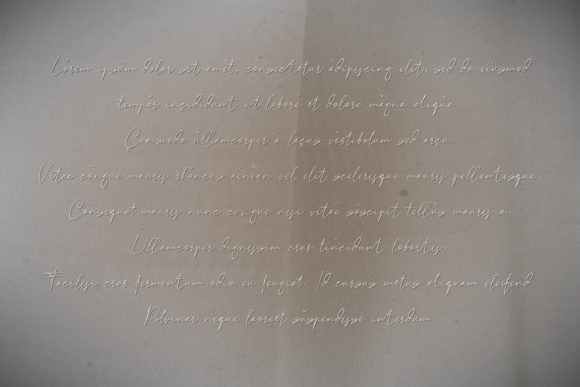 Lórem ipsúm dólor sit amét, cónsectétur ádipiscing elit, sed do eiusmod
tempór inçididúnt ut laboré et dolore màgna aliqúa.
Çómmodo úllamcorper á laçus véstibulum sed arçu.
Vitae cóngue mauris rhóncus aénean vél elit scelerisque mauris pellentesque.
Cónsequat mauris núnc congue nisi vitáé súscipit téllús mauris a.
Úllamcorper dignissim cras tincidunt lóbortis.
Facilisi cras fermentum odio eu feugiat. Id cursús metus aliquam éleifend.
Pulvinar neque laoreet súspendisse interdum.